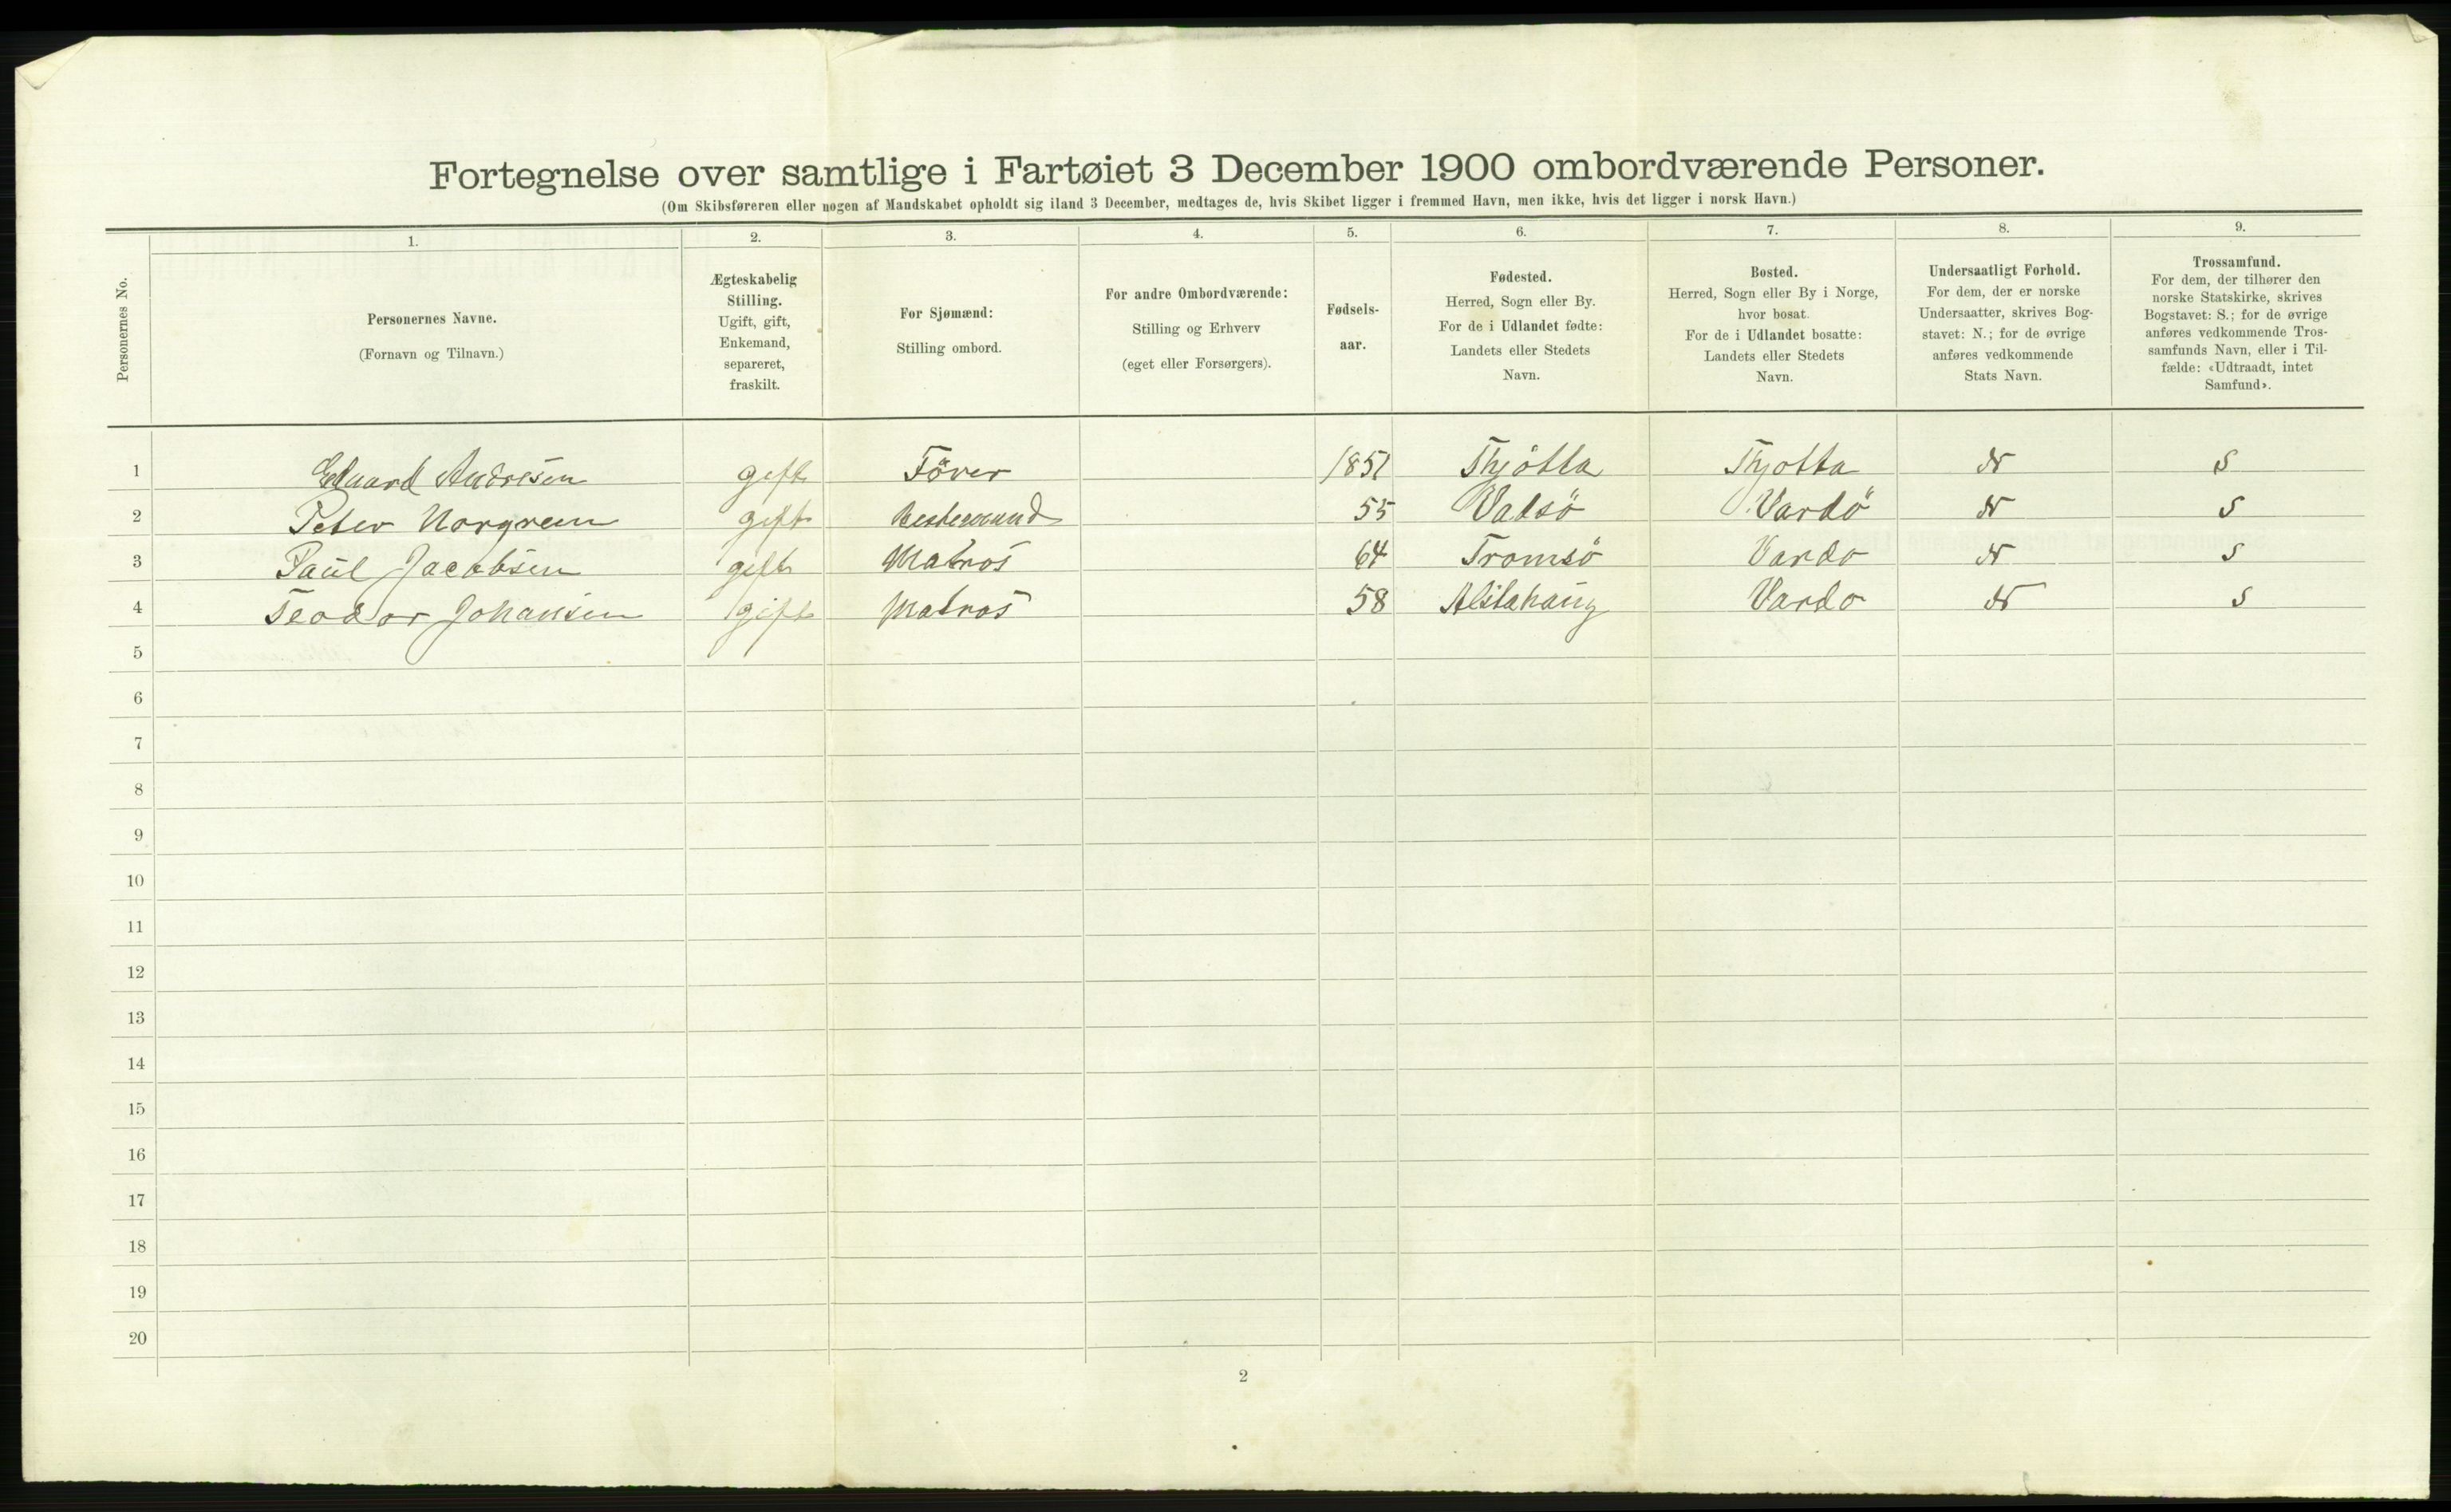 Fortegnelse over samtlige i Fartøiet 3 December 1900 ombordværende Personer.
(Om Skibsføreren eller nogen af Mandskabet opholdt sig iland 3 December, medtages de, hvis Skibet ligger i fremmed Havn, men ikke, hvis det ligger i norsk Havn.)
Personernes No.
1.
Personernes Navne.
(Fornavn og Tilnavn.)
2.
Ægteskabelig
Stilling.
Ugift, gift,
Enkemand,
separeret,
fraskilt.
3.
For Sjømænd:
Stilling ombord.
4.
For andre Ombordværende:
Stilling og Erhverv
(eget eller Forsørgers).
5.
Fødsels-
aar.
6.
Fødested.
Herred, Sogn eller By.
For de i Udlandet fødte:
Landets eller Stedets
Navn.
7.
Bosted.
Herred, Sogn eller By i Norge,
hvor bosat.
For de i Udlandet bosatte:
Landets eller Stedets
Navn.
8.
Undersaatligt Forhold.
For dem, der er norske
Undersaatter, skrives Bog-
stavet: N.; for de øvrige
anføres vedkommende
Stats Navn.
9.
Trossamfund.
For dem, der tilhører den
norske Statskirke, skrives
Bogstavet: S.; for de øvrige
anføres vedkommende Tros-
samfunds Navn, eller i Til-
fælde: «Udtraadt, intet
Samfund».
1 Eduard Andresen gift Förer 1851 Thjötta Thjotta N S
2 Peter Norgren gift Bestemand 55 Vadsö Vardö N S
3 Paul Jacobsen gift Matros 64 Tromsö Vardo N S
4 Teodor Johansen gift Matros 58 Alstahaug Vardo N S
5
6
7
8
9
10
11
12
13
14
15
16
17
18
19
20
2